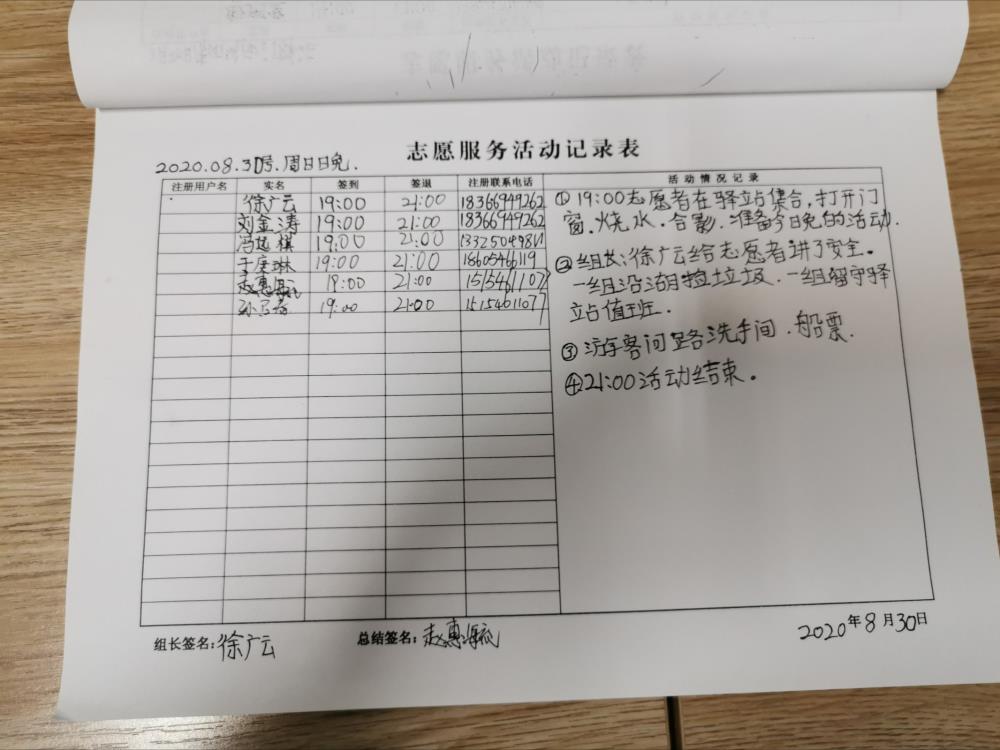 志愿服务活动记录表
2020.08.30号.周日日晚.
注册用户名 实名 签到 签退 注册联系电话 活动情况记录
徐广云 19:00 21:00 18366949262
刘金涛 19:00 21:00 18366949262
19:00 21:00
于庚琳 19:00 21:00 18605466119
19:00 21:00 15154611077
19:00 21:00 15154611077
①19:00志愿者在驿站集合,打开门
窗.烧水.合影.准备今日晚的活动.
②组长:徐广云给志愿者讲了安全。
一组沿湖捡垃圾.一组留守驿
站值班.
③游客问路洗手间.船票.
④21:00活动结束。
组长签名:徐广云 总结签名:赵惠海
2020年8月30日